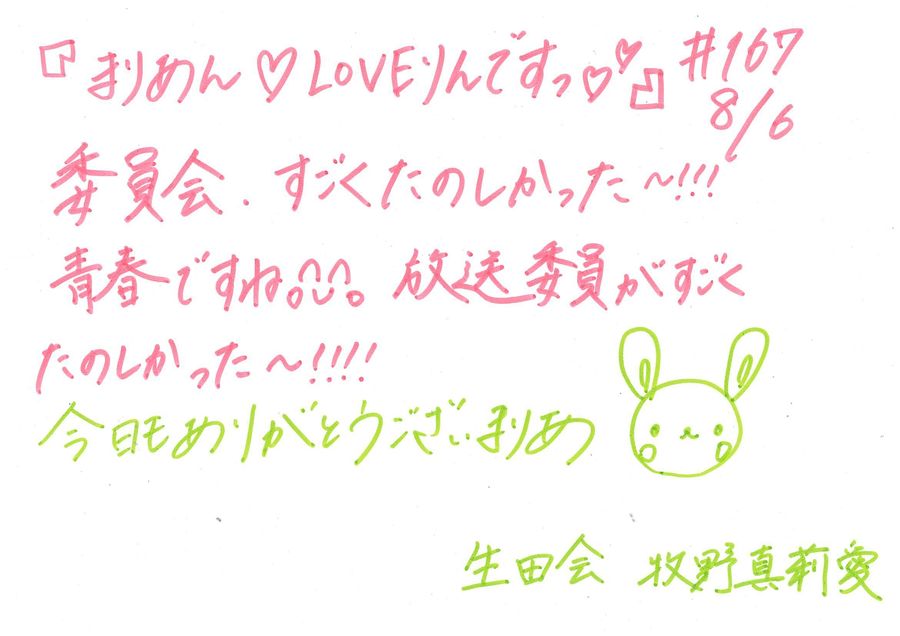 『まりめん♡LOVEりんですっ♡♡』#167
8/6
委員会、すごくたのしかった〜!!!
青春ですね。^_^。放送委員がすごく
たのしかった〜!!!!
今日もありがとうございまりあ
生田会 牧野真莉愛